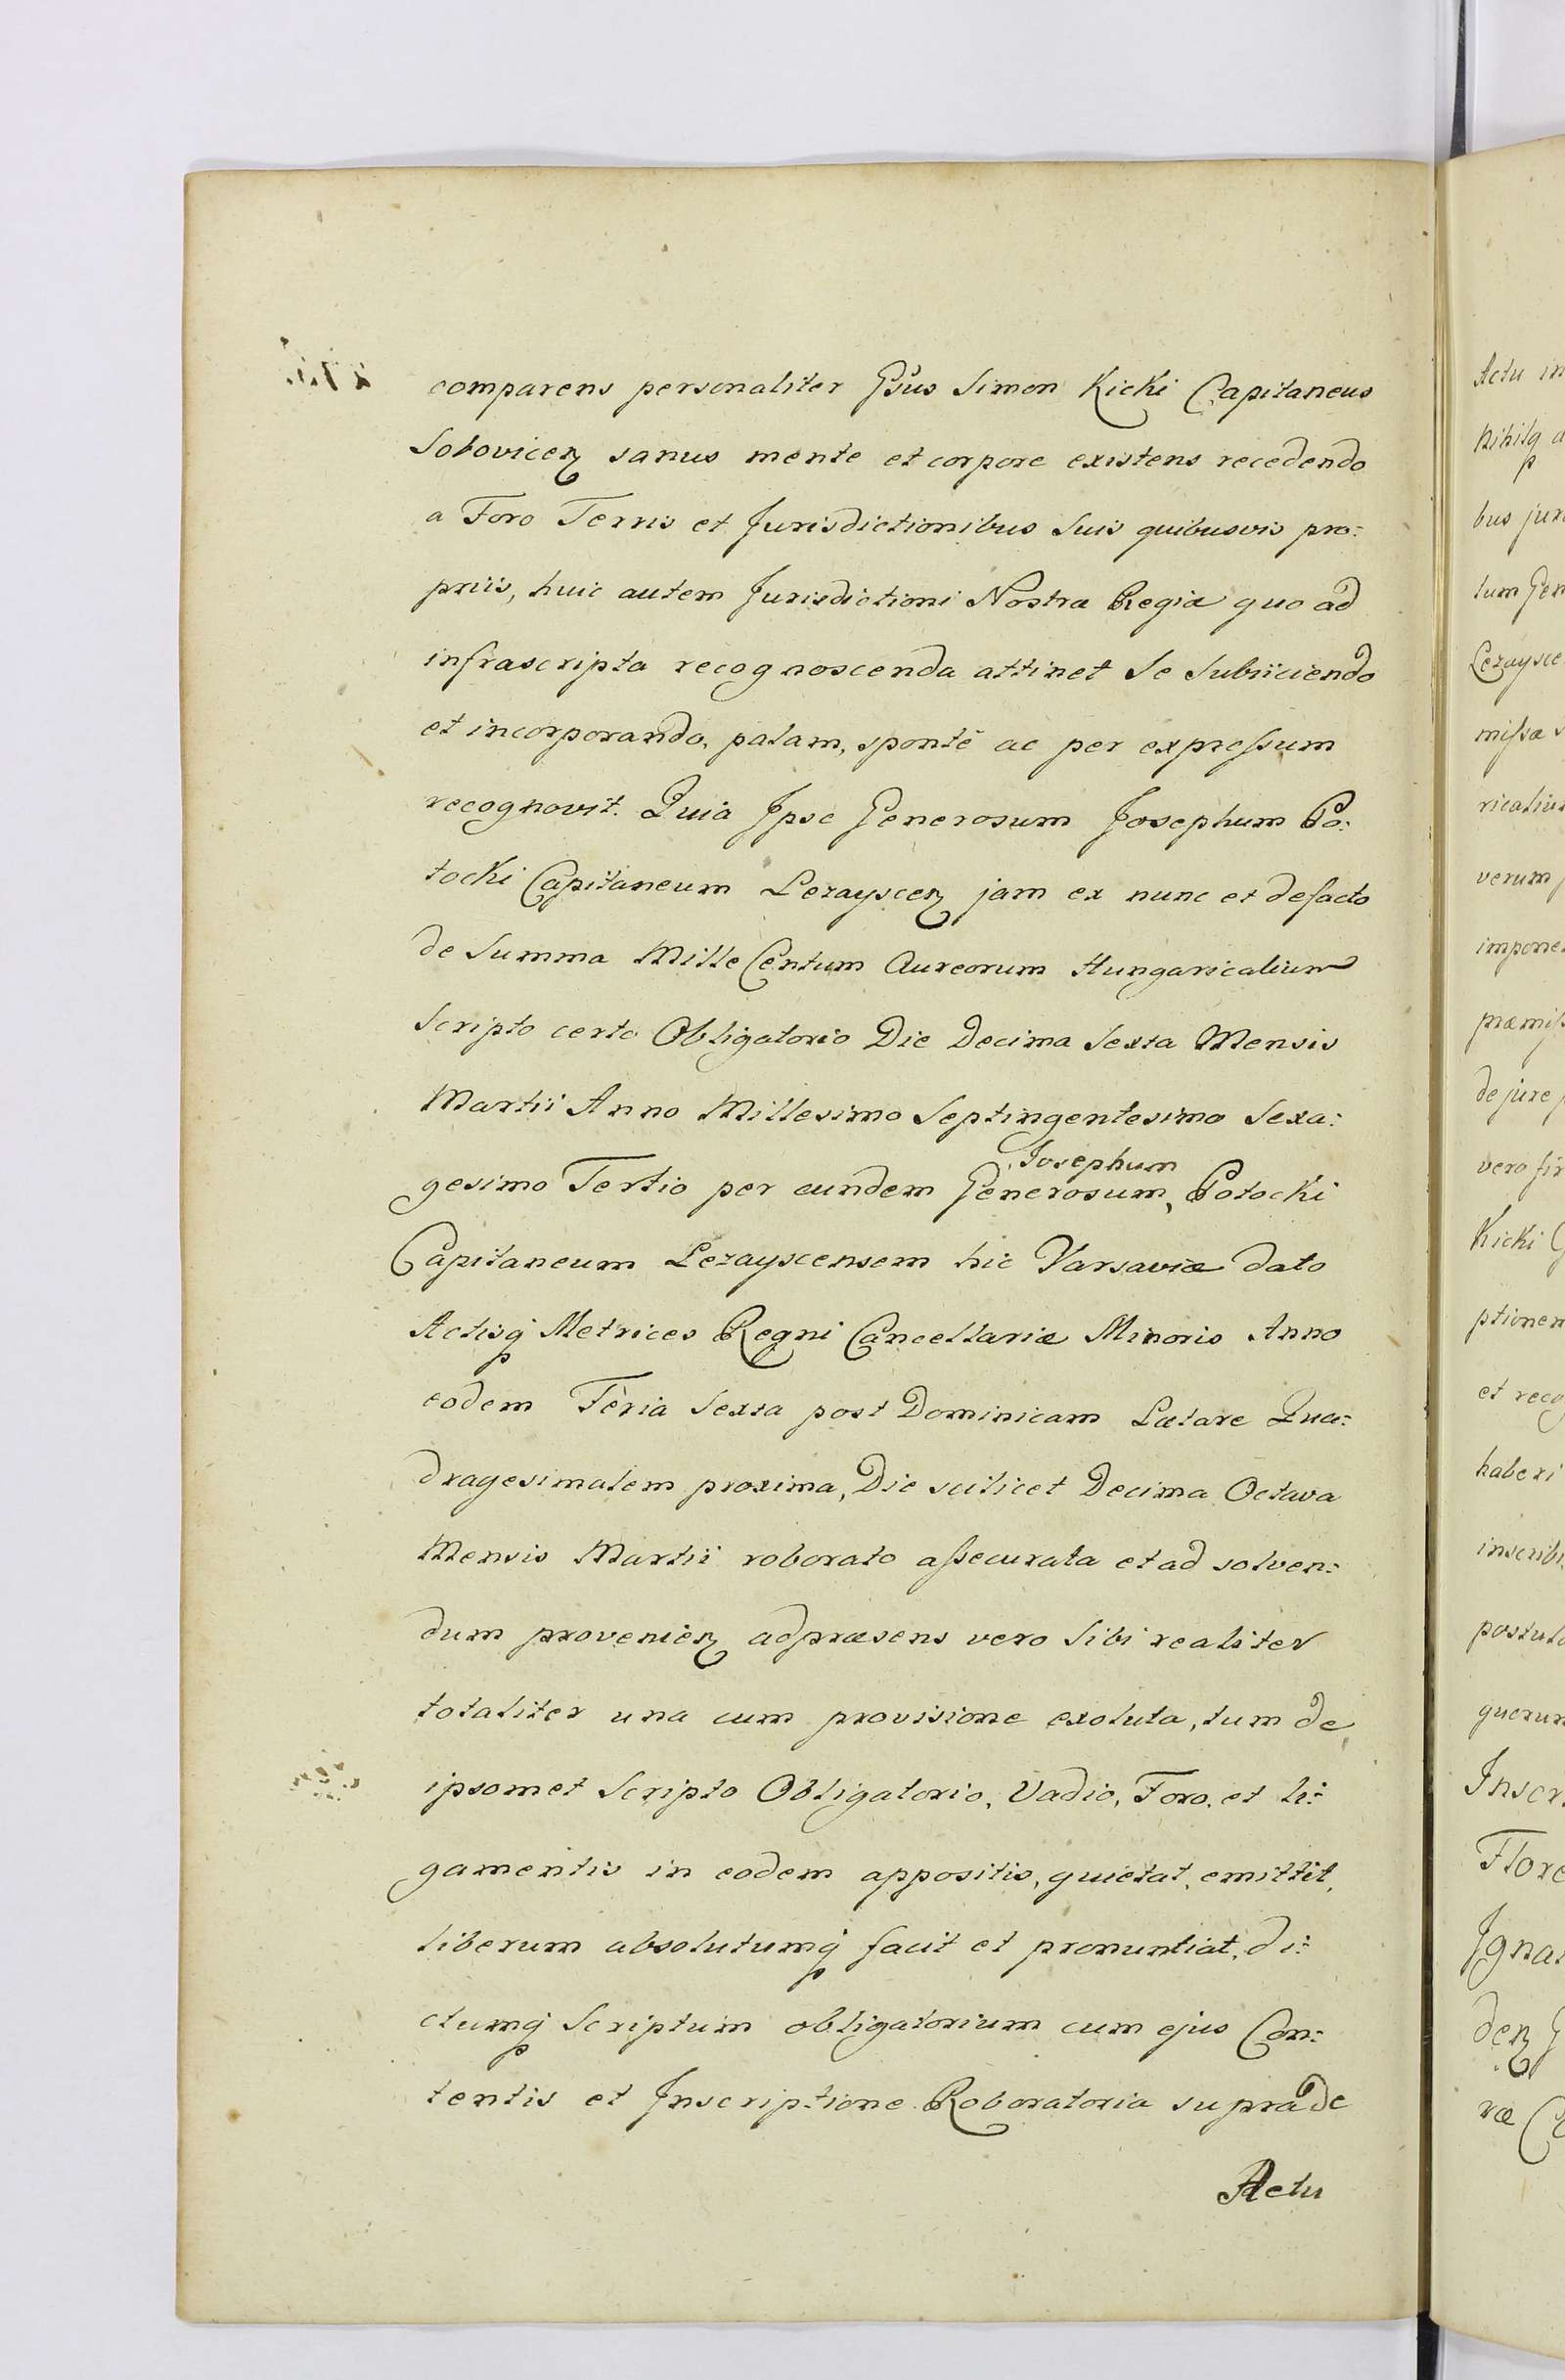 comparens personaliter Gsus Simon Kicki Capitaneus
Sobovicen sanus mente et corpore existens recedendo
a Foro Terris et Jurisdictionibus Suis quibusvis pro:
priis, huic autem Jurisdictioni Nostræ Regiæ quo ad
infrascripta recognoscenda attinet Se Subiiciendo
et incorporando, palam, sponte ac per expressum
recognovit. Quia Ipse Generosum Josephum Po:
tocki Capitaneum Lezayscen jam ex nunc et defacto
de Summa Mille Centum Aureorum Hungaricalium
Scripto certo Obligatorio Die Decima Sexta Mensis
Martii Anno Millesimo Septingentesimo Sexa:
Josephum
gesimo Tertio per eundem Generosum, Potocki
Capitaneum Lezayscensem hic Varsaviæ dato
Actisq Metrices Regni Cancellariæ Minoris Anno
eodem Feria Sexta post Dominicam Lætare Qua:
dragesimalem proxima, Die scilicet Decima Octava
Mensis Martii roborato assecurata et ad solven:
dum provenien adpræsens vero Sibi realiter
totaliter una cum provisione exoluta, tum de
ipsomet Scripto Obligatorio, Vadio, Foro, et li:
gamentis in eodem appositis, quietat, emittit,
liberum absolutumq facit et pronuntiat, di:
ctumq Scriptum obligatorium cum ejus Con:
tentis et Inscriptione Roboratoria supra de
Actu
Actu in
Nihilq
bus jur
tum Gen
Lezaysce
missæ
ricaliu
verum
impone
præmis
de jure
vero fir
Kicki
ptionem
et reco
haberi
inscribi
postula
quorum
Inscr
Flore
Ignat
den
ræ